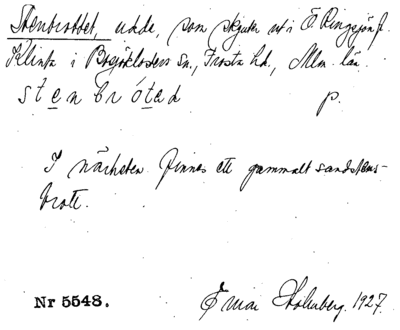 Stenbrottet, udde, som skjuter ut i Ö Ringsjön fr.
Klinta i Bosjöklosters sn., Frosta hd., Mlm. län.
stenbróted p.
I närheten finnes ett gammalt sandstens-
brott.
Nr 5548. Holmberg. 1927.